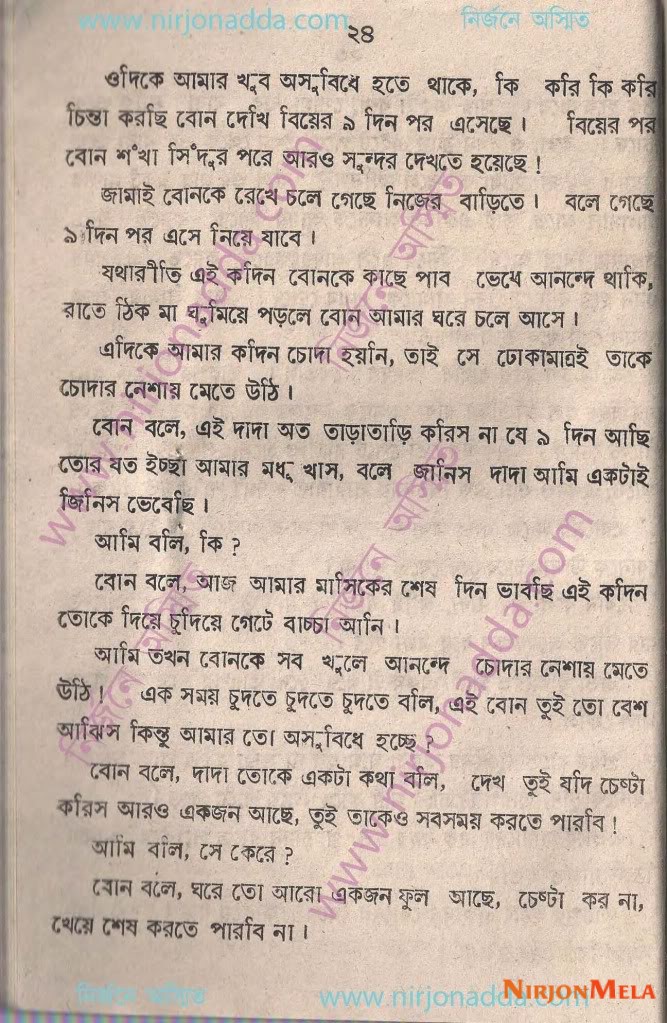 www.nirjonadda.com
নির্জনে অস্মিত
২৪
ওদিকে আমার খুব অসুবিধে হতে থাকে, কি করি কি করি
চিন্তা করছি বোন দেখি বিয়ের ৯ দিন পর এসেছে। বিয়ের পর
বোন শঁখা সিঁদুর পরে আরও সুন্দর দেখতে হয়েছে!
জামাই বোনকে রেখে চলে গেছে নিজের বাড়িতে। বলে গেছে
৯ দিন পর এসে নিয়ে যাবে।
যথারীতি এই কদিন বোনকে কাছে পাব ভেখে আনন্দে থাকি,
রাতে ঠিক মা ঘুমিয়ে পড়লে বোন আমার ঘরে চলে আসে।
এদিকে আমার কদিন চোদা হয়নি, তাই সে ঢোকামাত্রই তাকে
চোদার নেশায় মেতে উঠি।
বোন বলে, এই দাদা অত তাড়াতাড়ি করিস না যে ৯ দিন আছি
তোর যত ইচ্ছা আমার মধু খাস, বলে জানিস দাদা আমি একটাই
জিনিস ভেবেছি।
আমি বলি, কি ?
বোন বলে, আজ আমার মাসিকের শেষ দিন ভাবছি এই কদিন
তোকে দিয়ে চুদিয়ে গেটে বাচ্চা আনি।
আমি তখন বোনকে সব খুলে আনন্দে চোদার নেশায় মেতে
উঠি! এক সময় চুদতে চুদতে চুদতে বলি, এই বোন তুই তো বেশ
আঝিস কিন্তু আমার তো অসুবিধে হচ্ছে ?
বোন বলে, দাদা তোকে একটা কথা বলি, দেখ তুই যদি চেষ্টা
করিস আরও একজন আছে, তুই তাকেও সবসময় করতে পারবি!
আমি বলি, সে কেরে ?
বোন বলে, ঘরে তো আরো একজন ফুল আছে, চেষ্টা কর না,
খেয়ে শেষ করতে পারবি না।
নির্জনে অস্মিত
www.nirjonadda.com
NIRJONMELA